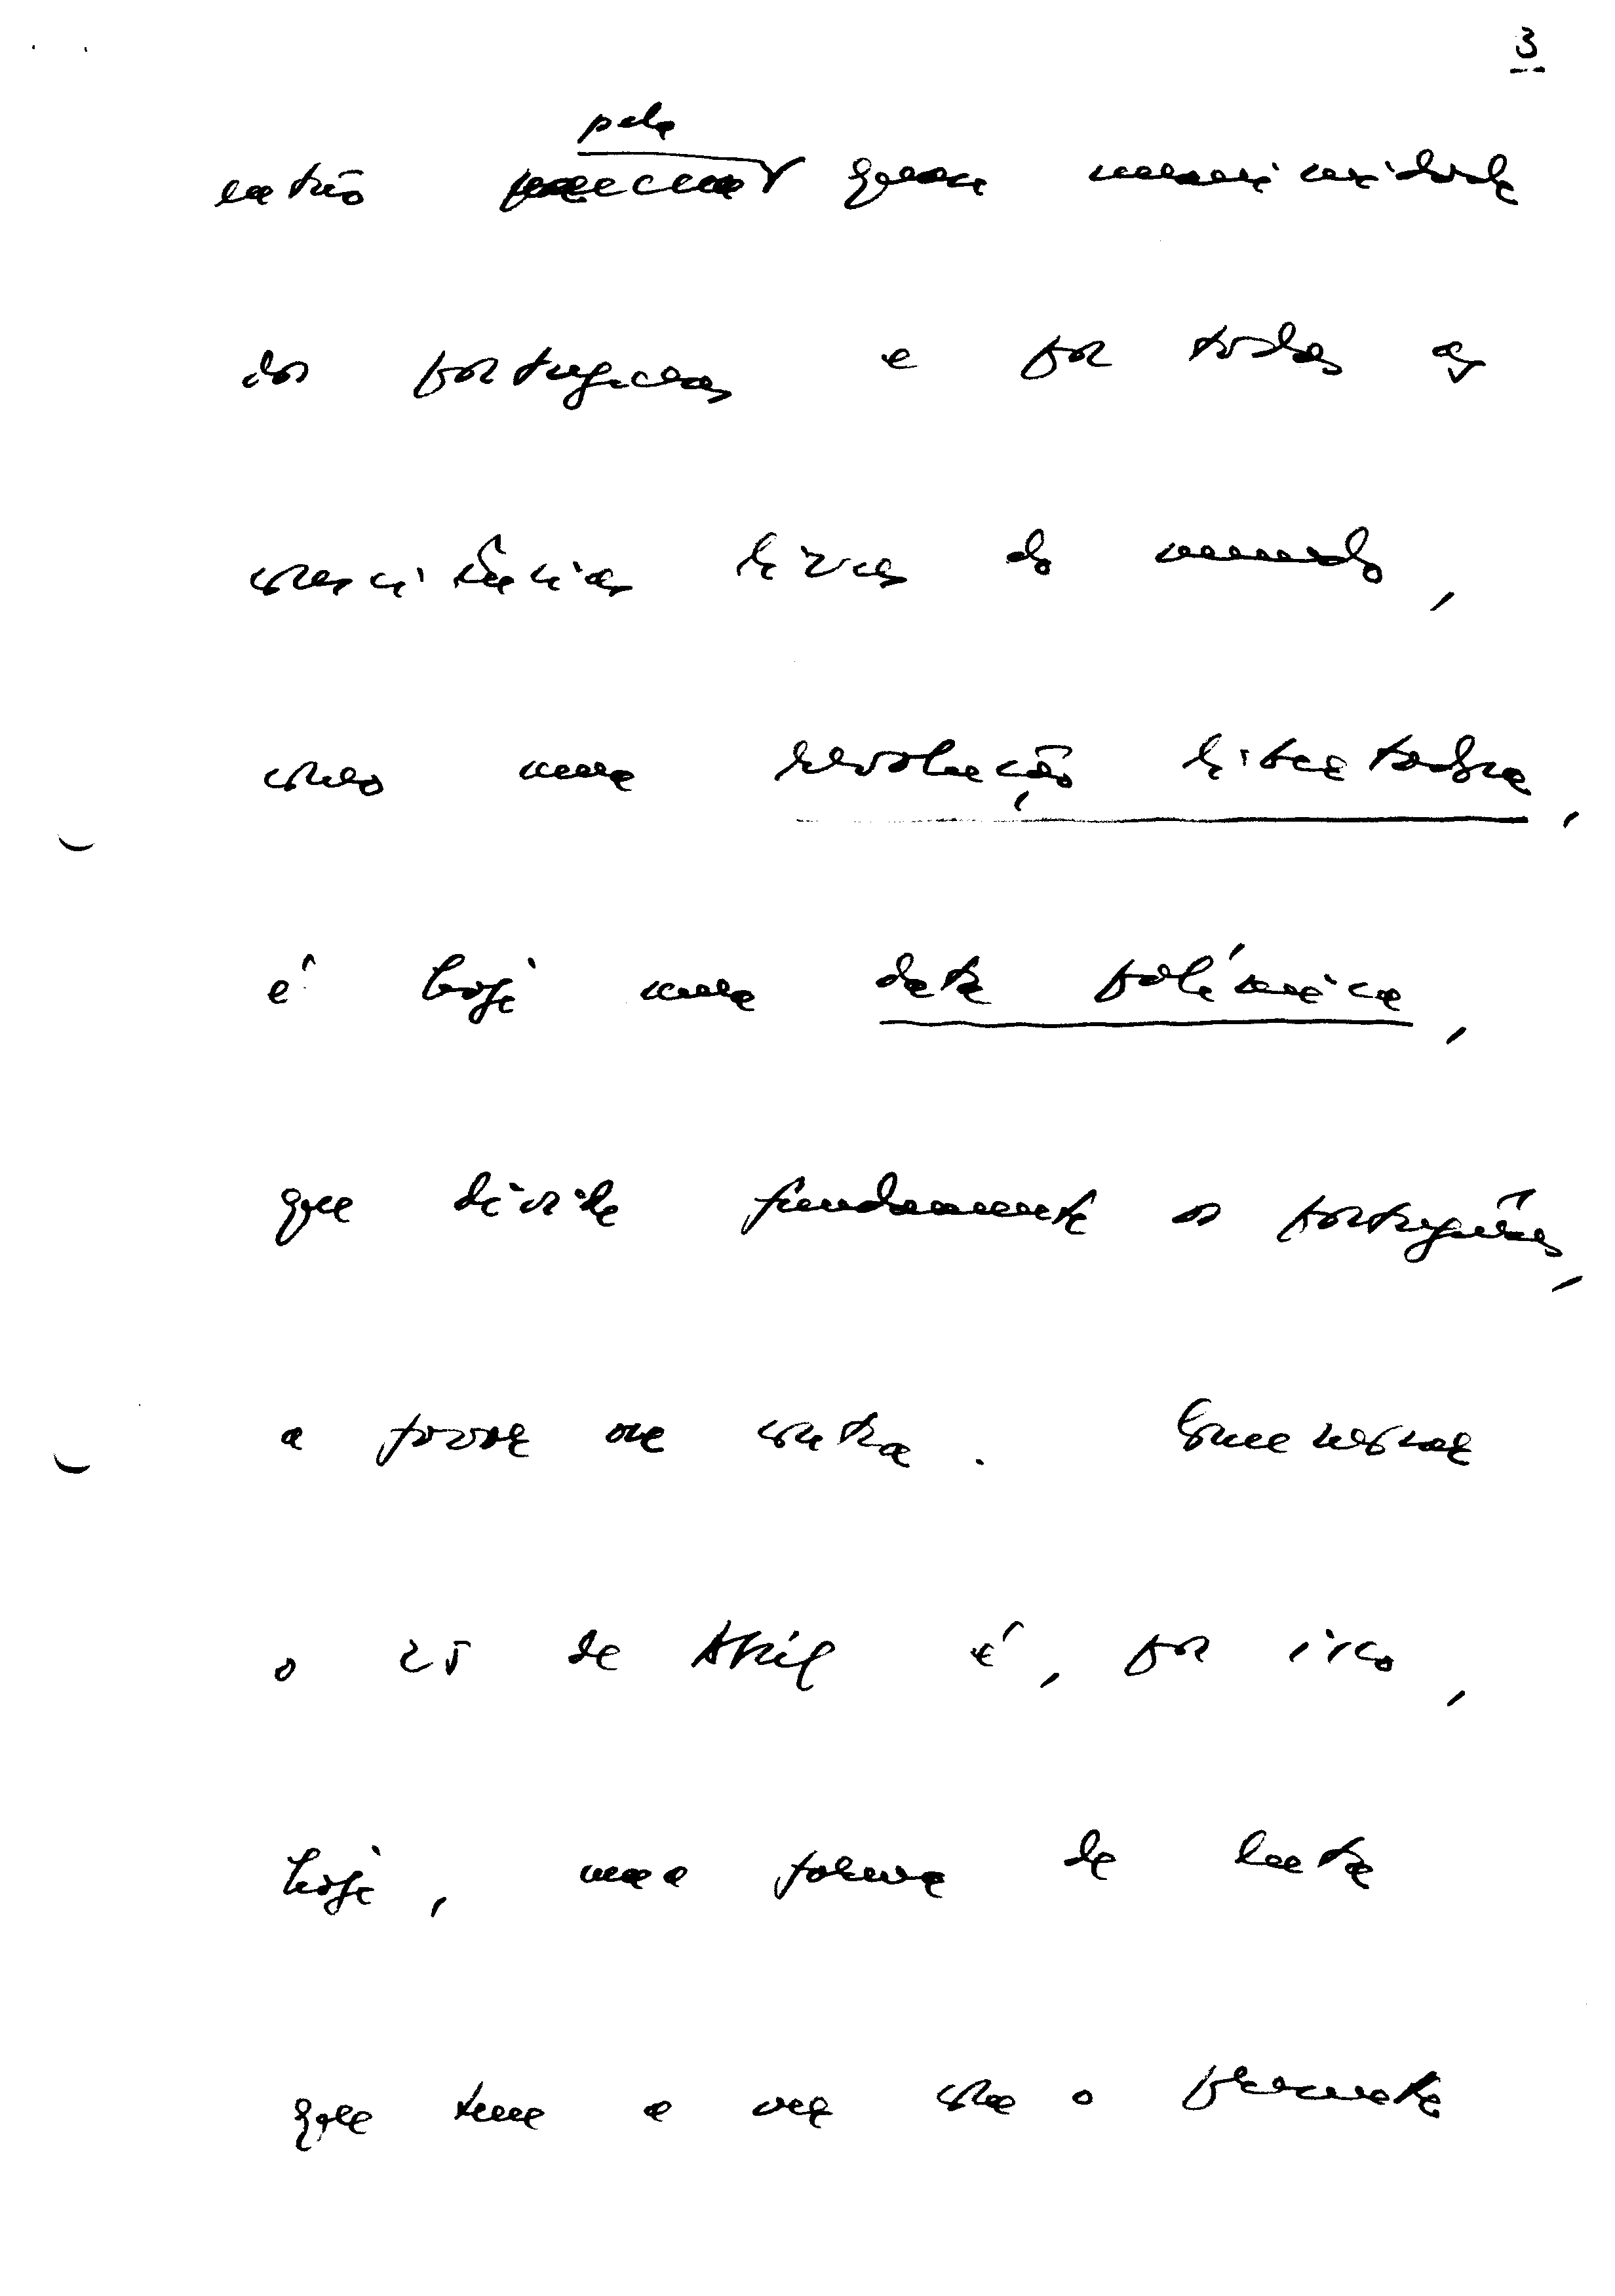 3
pela
então quase unanimidade
dos portugueses e por todas as
consciências livres do mundo,
como uma revolução libertadora,
é hoje uma data polémica,
que divide fundamente os portugueses,
a favor ou contra. Comemorar
o 25 de Abril é, por isso,
hoje, uma forma de luta
que tem a ver com o presente